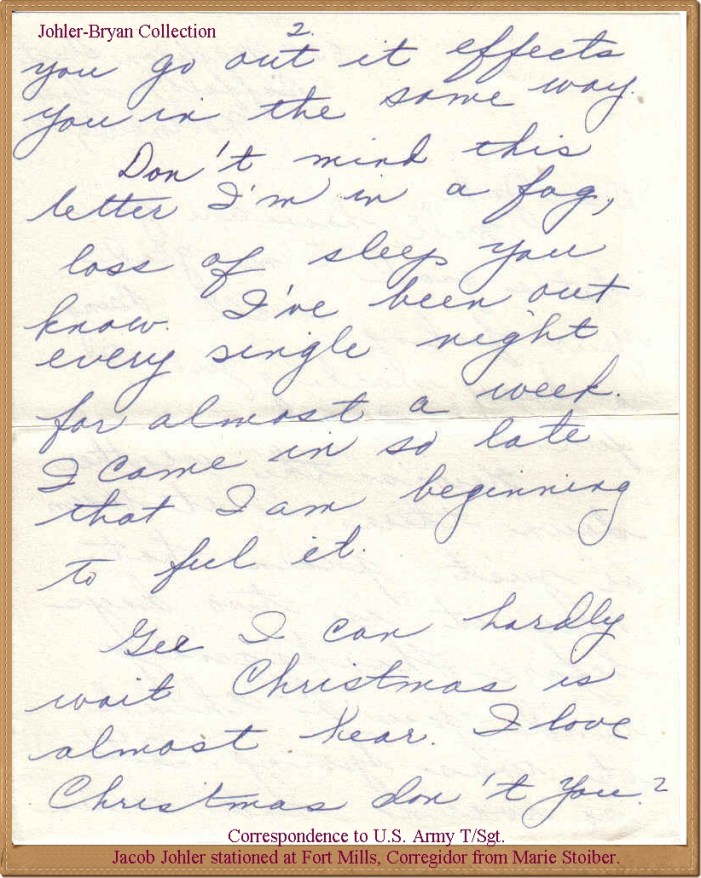 Johler-Bryan Collection
2.
you go out it effects
you in the same way.
Don't mind this
letter I'm in a fog,
loss of sleep you
know. I've been out
every single night
for almost a week.
I come in so late
that I am beginning
to feel it.
Gee I can hardly
wait Christmas is
almost hear. I love
Christmas don't you?
Correspondence to U.S. Army T/Sgt.
Jacob Johler stationed at Fort Mills, Corregidor from Marie Stoiber.